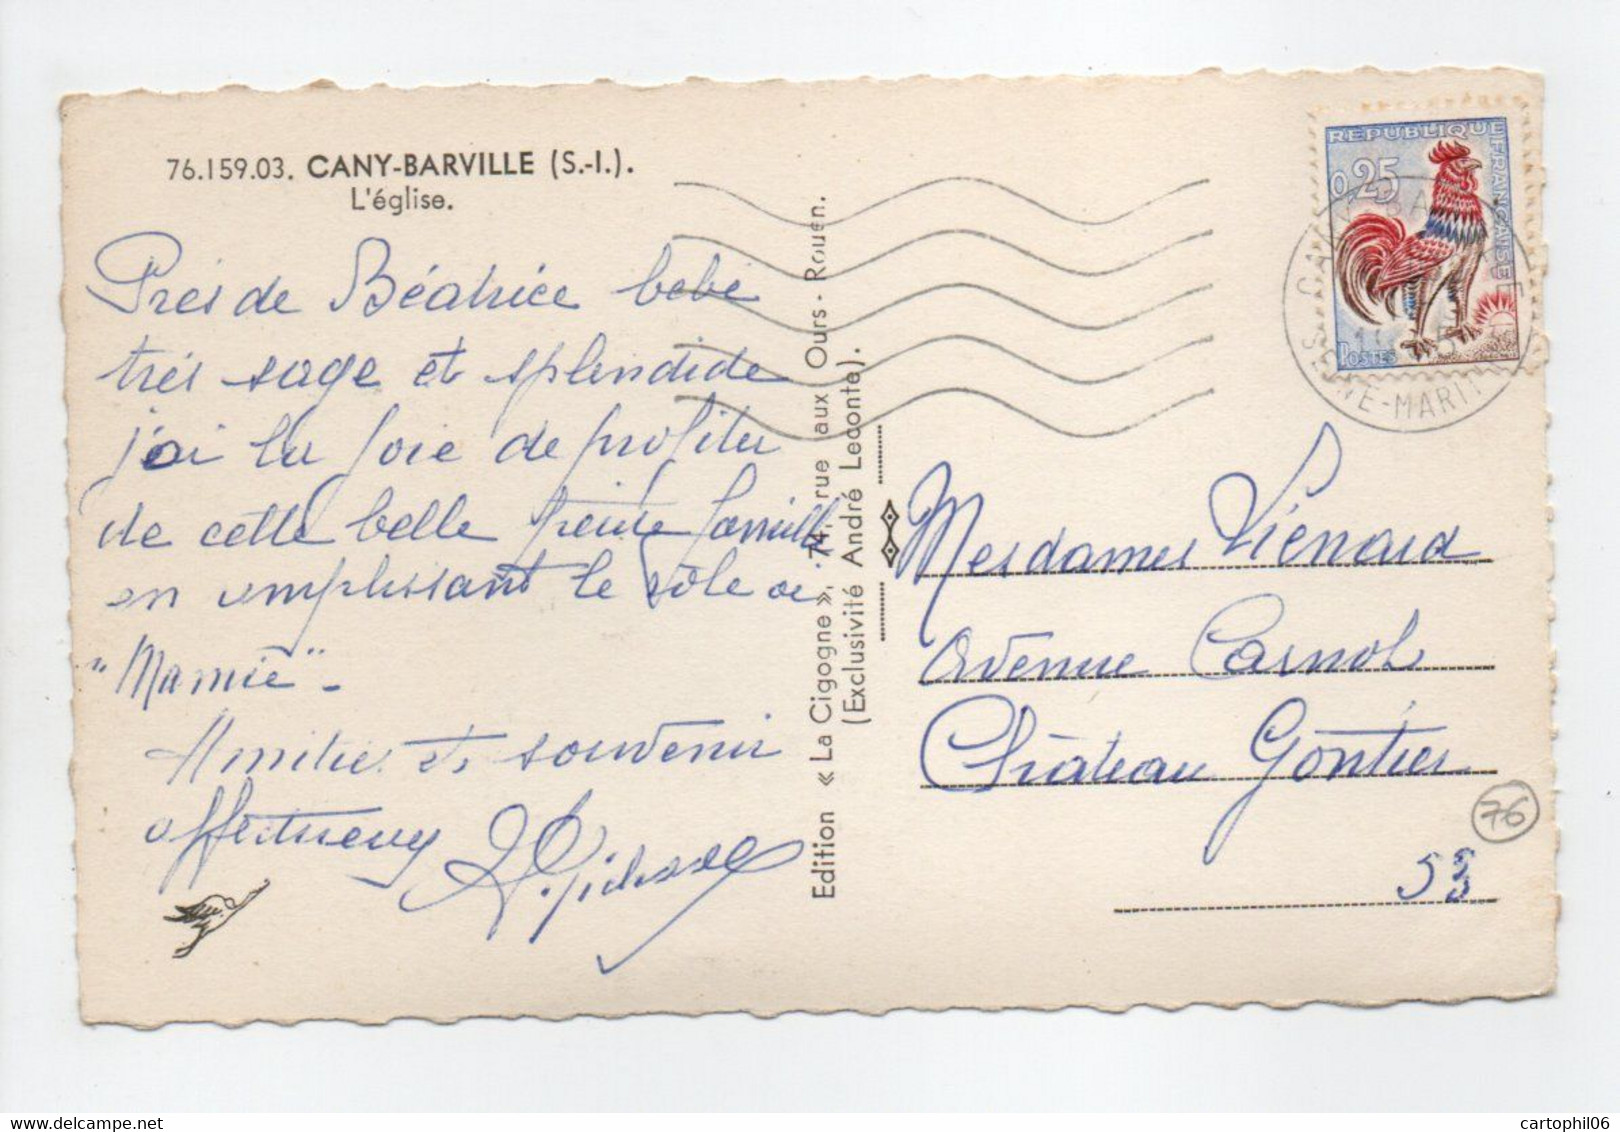 76.159.03. CANY-BARVILLE (S.-I.).
L'église.
Près de Béatrice bébé
très sage et splendide
j'ai la joie de profiter
de cette belle petite famille
en remplissant le rôle de
"Mamie" -
Amitiés et souvenir
affectueux
Edition « La Cigogne », 74, rue aux Ours - Rouen.
(Exclusivité André Leconte).
REPUBLIQUE FRANÇAISE
0,25
POSTES
CANY BARVILLE
SEINE-MARIT
Mesdames Viénard
Avenue Carnot
Château Gontier
53
76
cartophil06